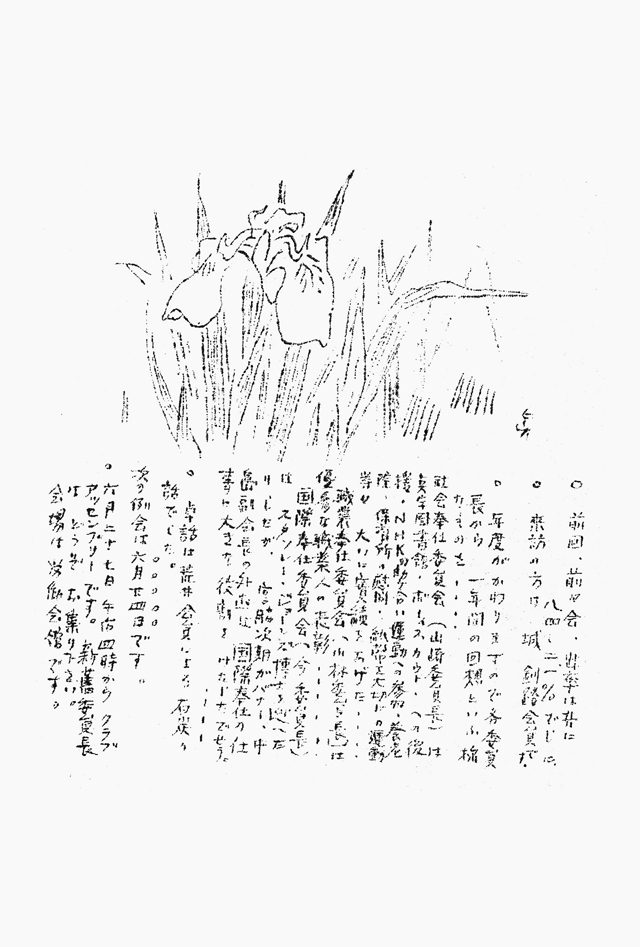 ○ 前回、前々会、出率は共に
八四・二一%でした。
○ 来訪の方は 城 会員です。
○ 年度がかわりますので各委員
長から 一年間の回想といふ様
なものを・・・・
社会奉仕委員会(山崎委員長)は
図書館・ボーイスカウトへの後
援・NHK助け合い運動への参加・養老
院・保育所の慰問・紙幣を大切にの運動
等々 大いに実績をあげた・・・・
職業奉仕委員会(小林委員長)は
優秀な職業人の表彰・・・・
国際奉仕委員会(今 委員長)
は スタンレー・ジョーンズ博士を迎へた
りしたが、 次期ガバナー、中
島副会長の外遊は 国際奉仕の仕
事に大きな役割を はたしたでせう。
・・・・
○ 卓話は 荒井会員による 石炭の
話でした。
○○○○○
次の例会は六月廿四日です。
○ 六月二十七日 午后四時から クラブ
アッセンブリーです。 新舊委員長
は どうぞ お集り下さい。
会場は 労働会館です。